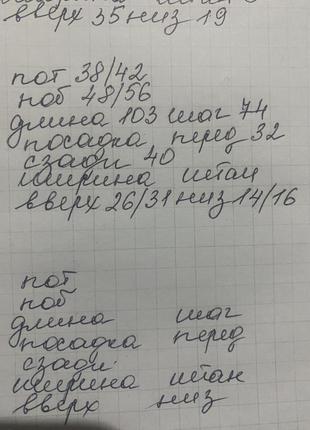 вверх 35 низ 19
пот 38/42
поб 48/56
длина 103 шаг 74
посадка перед 32
сзади 40
ширина штан
вверх 26/31 низ 14/16
пот
поб
длина шаг
посадка перед
сзади
ширина штан
вверх низ